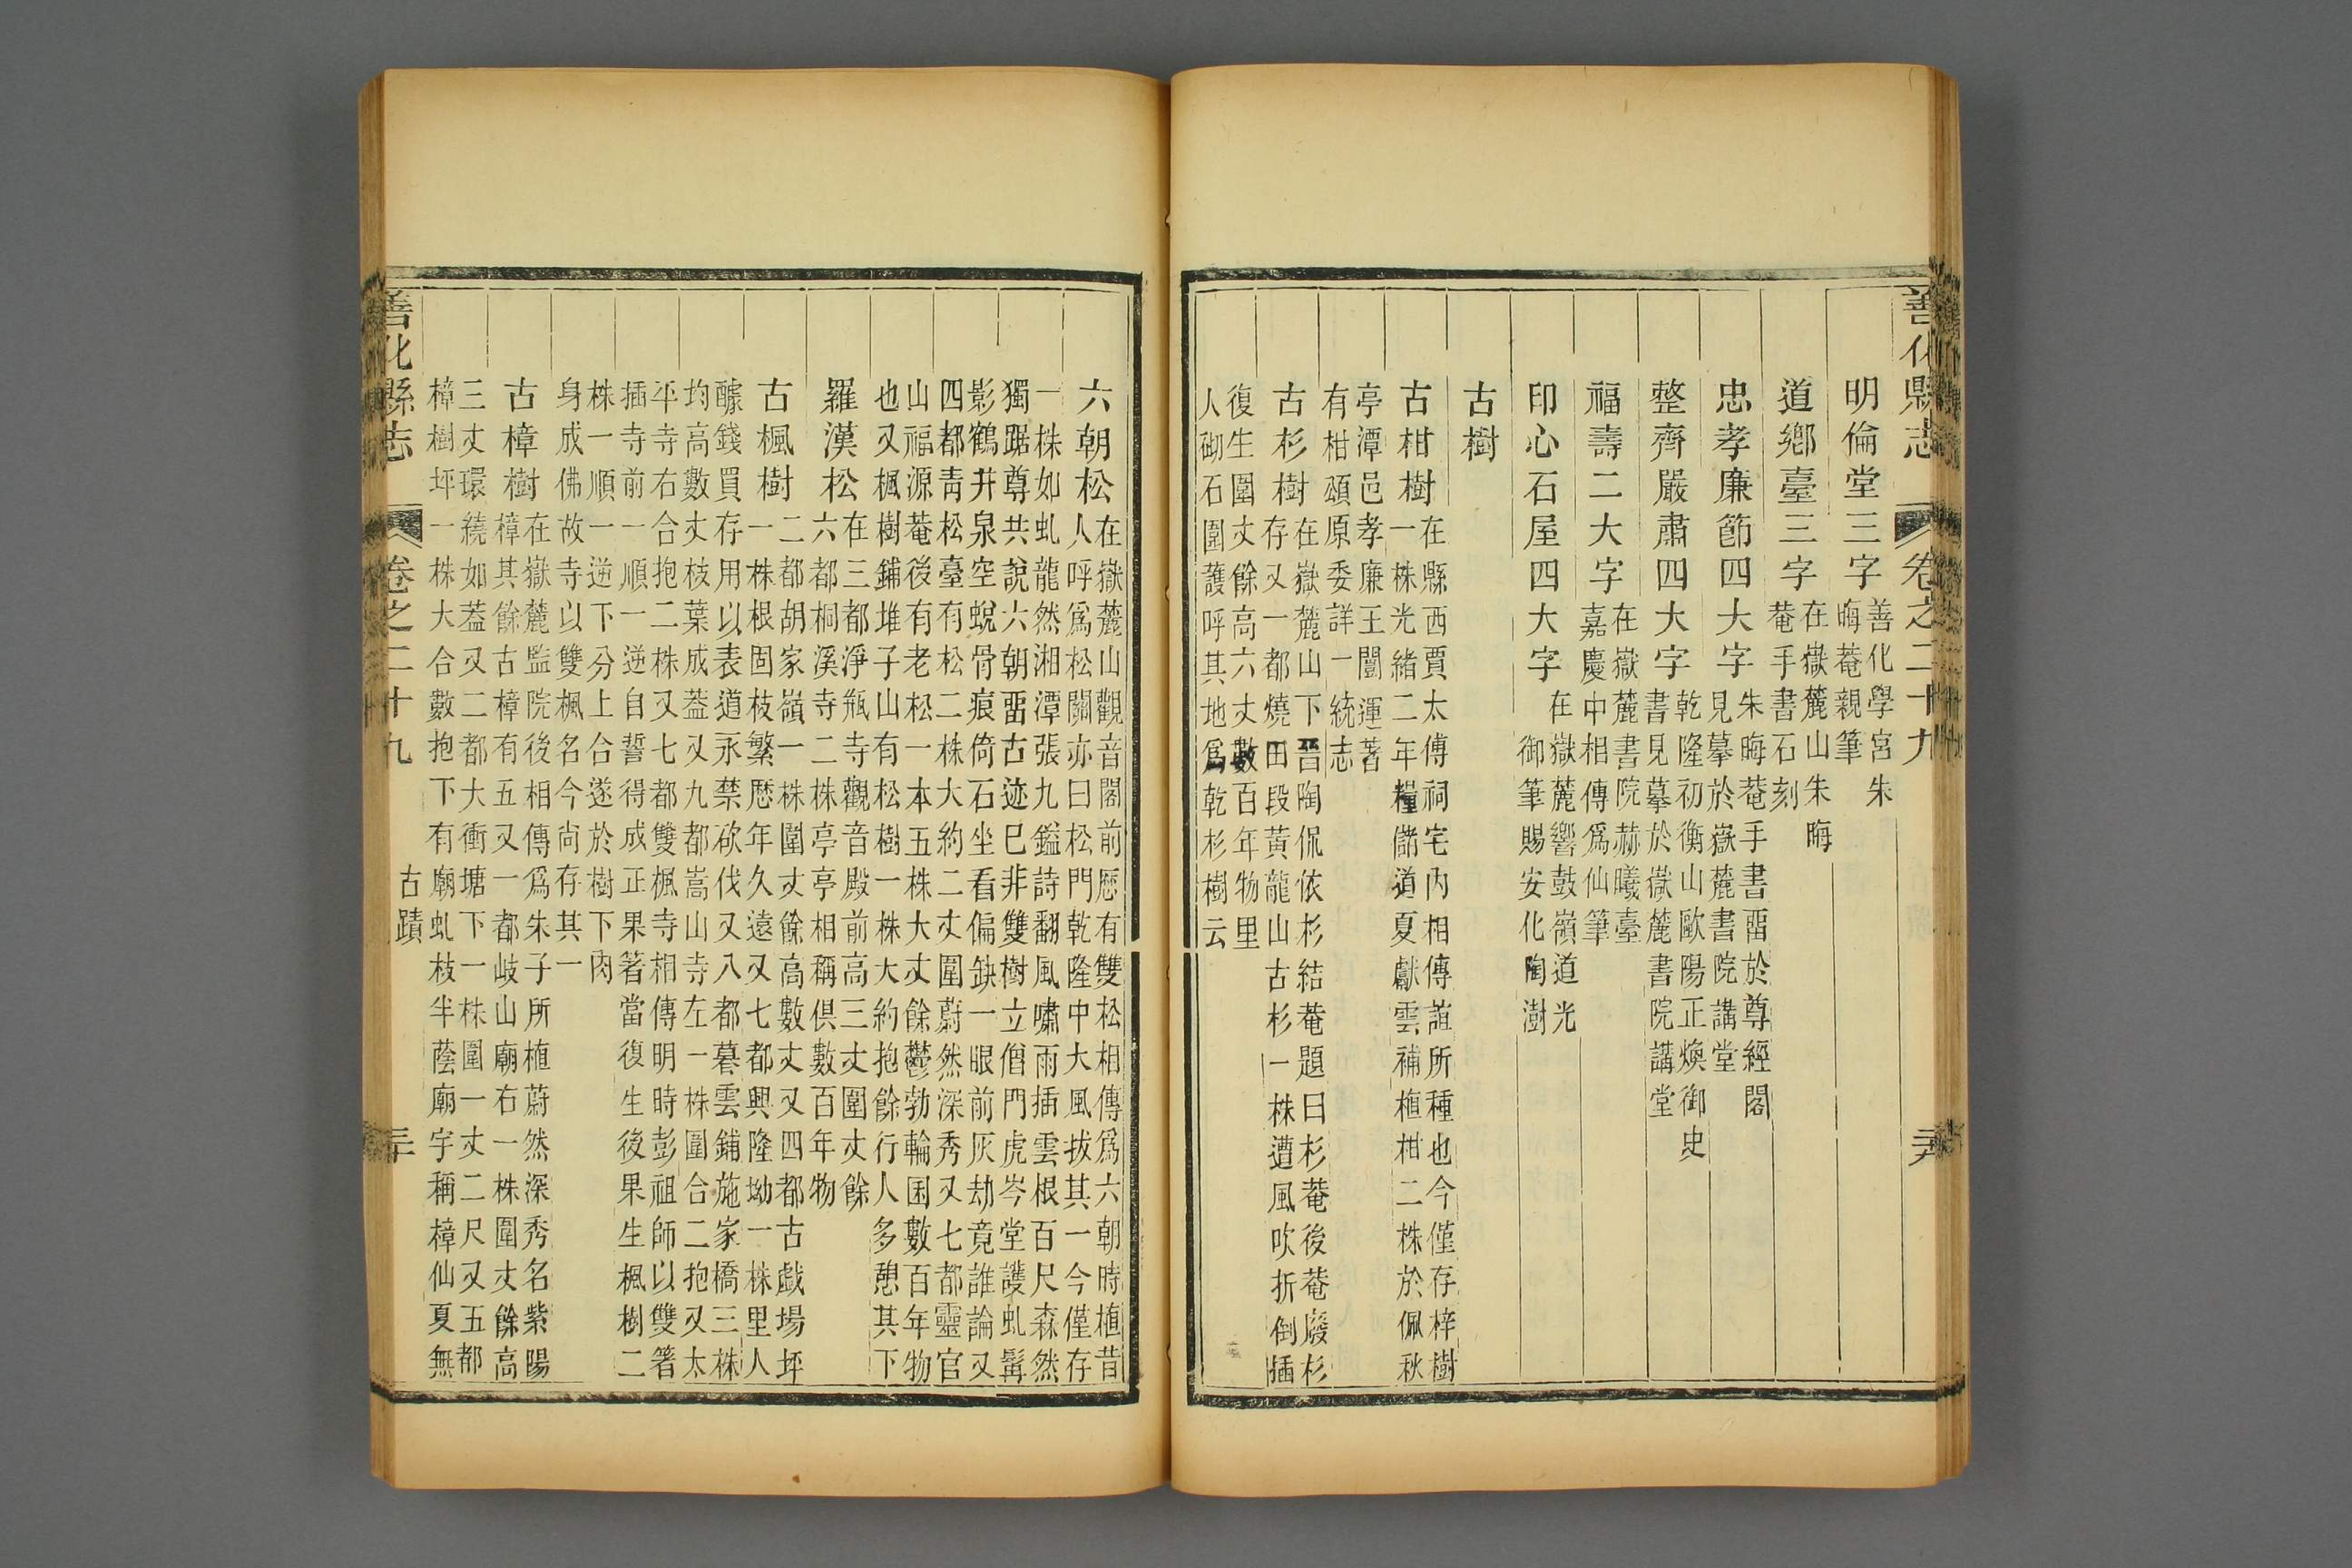 善化縣志 卷之二十九
明倫堂三字 善化學宮朱
晦菴親筆
道鄉臺三字 在嶽麓山朱晦
菴手書石刻
忠孝廉節四大字 朱晦菴手書畱於尊經閣
見摹於嶽麓書院講堂
整齊嚴肅四大字 乾隆初衡山歐陽正煥御史
書見摹於嶽麓書院講堂
福壽二大字 在嶽麓書院赫曦臺
嘉慶中相傳爲仙筆
印心石屋四大字 在嶽麓響鼓嶺道光
御筆賜安化陶澍
古樹
古柑樹 在縣西賈太傅祠宅內相傳誼所種也今僅存梓樹
一株光緒二年糧儲道夏獻雲補植柑二株於佩秋
亭潭邑孝廉王闓運著
有柑頌原委詳一統志
古杉樹 在嶽麓山下晉陶侃依杉結菴題曰杉菴後菴廢杉
存又一都燒田段黃龍山古杉一株遭風吹折倒插
復生圍丈餘高六丈數百年物里
人砌石圍護呼其地爲乾杉樹云
六朝松 在嶽麓山觀音閣前歷有雙松相傳爲六朝時植昔
人呼爲松關亦曰松門乾隆中大風拔其一今僅存
一株如虬龍然湘潭張九鎰詩翻風嘯雨插雲根百尺森然
獨踞尊共說六朝畱古迹巳非雙樹立僧門虎岑堂護虬髯
影鶴井泉空蛻骨痕倚石坐看偏缺一眼前灰劫竟誰論又
四都靑松臺有松二株大約二丈圍蔚然深秀又七都靈官
山福源菴後有老松一本五株大丈餘鬱勃輪囷數百年物
也又楓樹鋪堆子山有松樹一株大約抱餘行人多憩其下
羅漢松 在三都淨瓶寺觀音殿前高三丈圍丈餘
六都桐溪寺二株亭亭相稱俱數百年物
古楓樹 二都胡家嶺一株圍丈餘高數丈又四都古戲場坪
一株根固枝繁歷年久遠又七都興隆坳一株里人
醵錢買存用以表道永禁砍伐又八都暮雲鋪施家橋三株
均高數丈枝葉成蓋又九都嵩山寺左一株圍合二抱又太
平寺右合抱二株又七都雙楓寺相傳明時彭祖師以雙箸
插寺前一順一逆自誓得成正果箸當復生後果生楓樹二
株一順一逆下分上合遂於樹下肉
身成佛故寺以雙楓名今尚存其一
古樟樹 在嶽麓監院後相傳爲朱子所植蔚然深秀名紫陽
樟其餘古樟有五又一都岐山廟右一株圍丈餘高
三丈環繞如蓋又二都大衝塘下一株圍一丈二尺又五都
樟樹坪一株大合數抱下有廟虬枝半蔭廟宇稱樟仙夏無
善化縣志 卷之二十九 古蹟